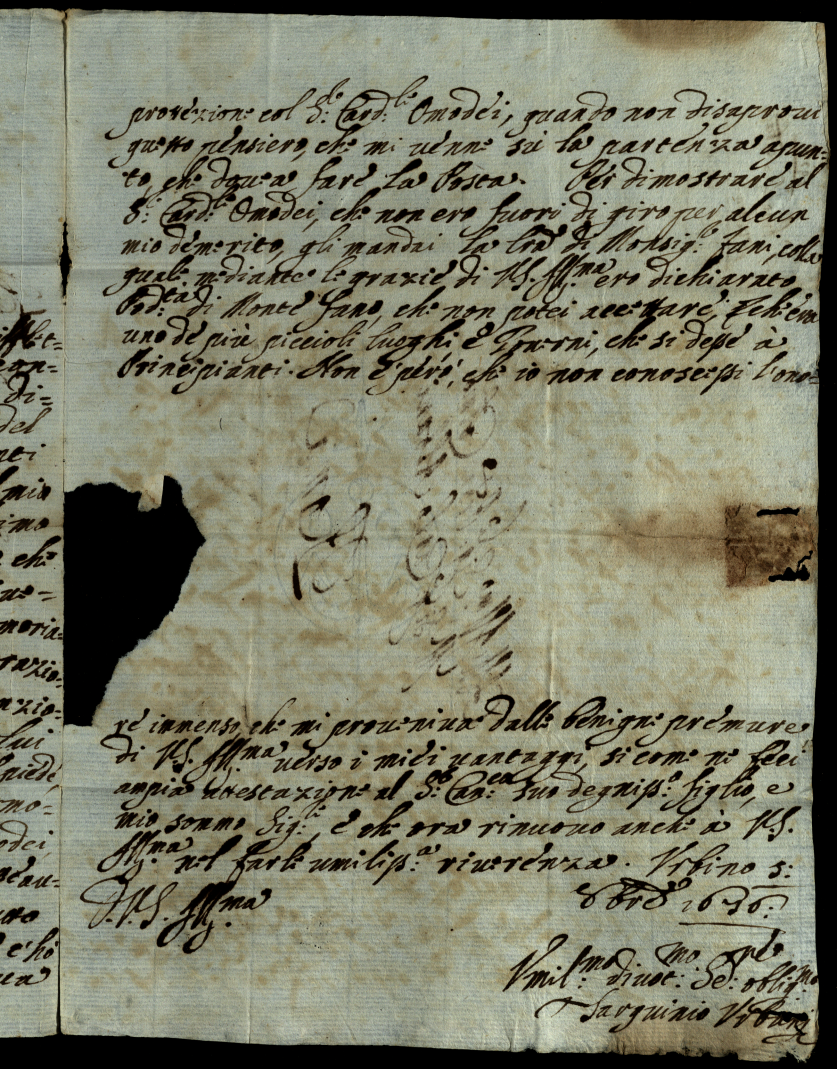 protezione col S.r Card.le Omodei, quando non disaprovi
questo pensiero, che mi venne sù la partenza apun-
to, che dovea fare la Posta. Per dimostrare al
S.r Card.le Omodei, che non ero fuori di giro per alcun
mio demerito, gli mandai la lra di Monsig.r Fani, colla
quale mediante le grazie di V.S. Ill.ma ero dichiarato
Pod.tà di Monte fano, che non potei accettare, era
uno de più piccioli luoghi è Governi, che si desse à
Principianti. Non è però, che io non conoscessi l'ono-
re immenso, che mi proveniva dalle benigne premure
di V.S. Ill.ma verso i miei vantaggi, si come ne feci
ampia attestazione al S.r suo degniss.o figlio, e
mio sommo Sig.re, e che ora rinuovo anche à V.S.
Ill.ma nel farle umiliss.a riverenza. Urbino 5:
8bre 1696:
D.V.S. Ill.ma
Umil.mo divot.mo Se.re oblig.mo
Tarquinio Urbani
mio
zimo
che
moria-
razio-
nzio-
lui
piede,
mo-
odei,
e hò
del
di-